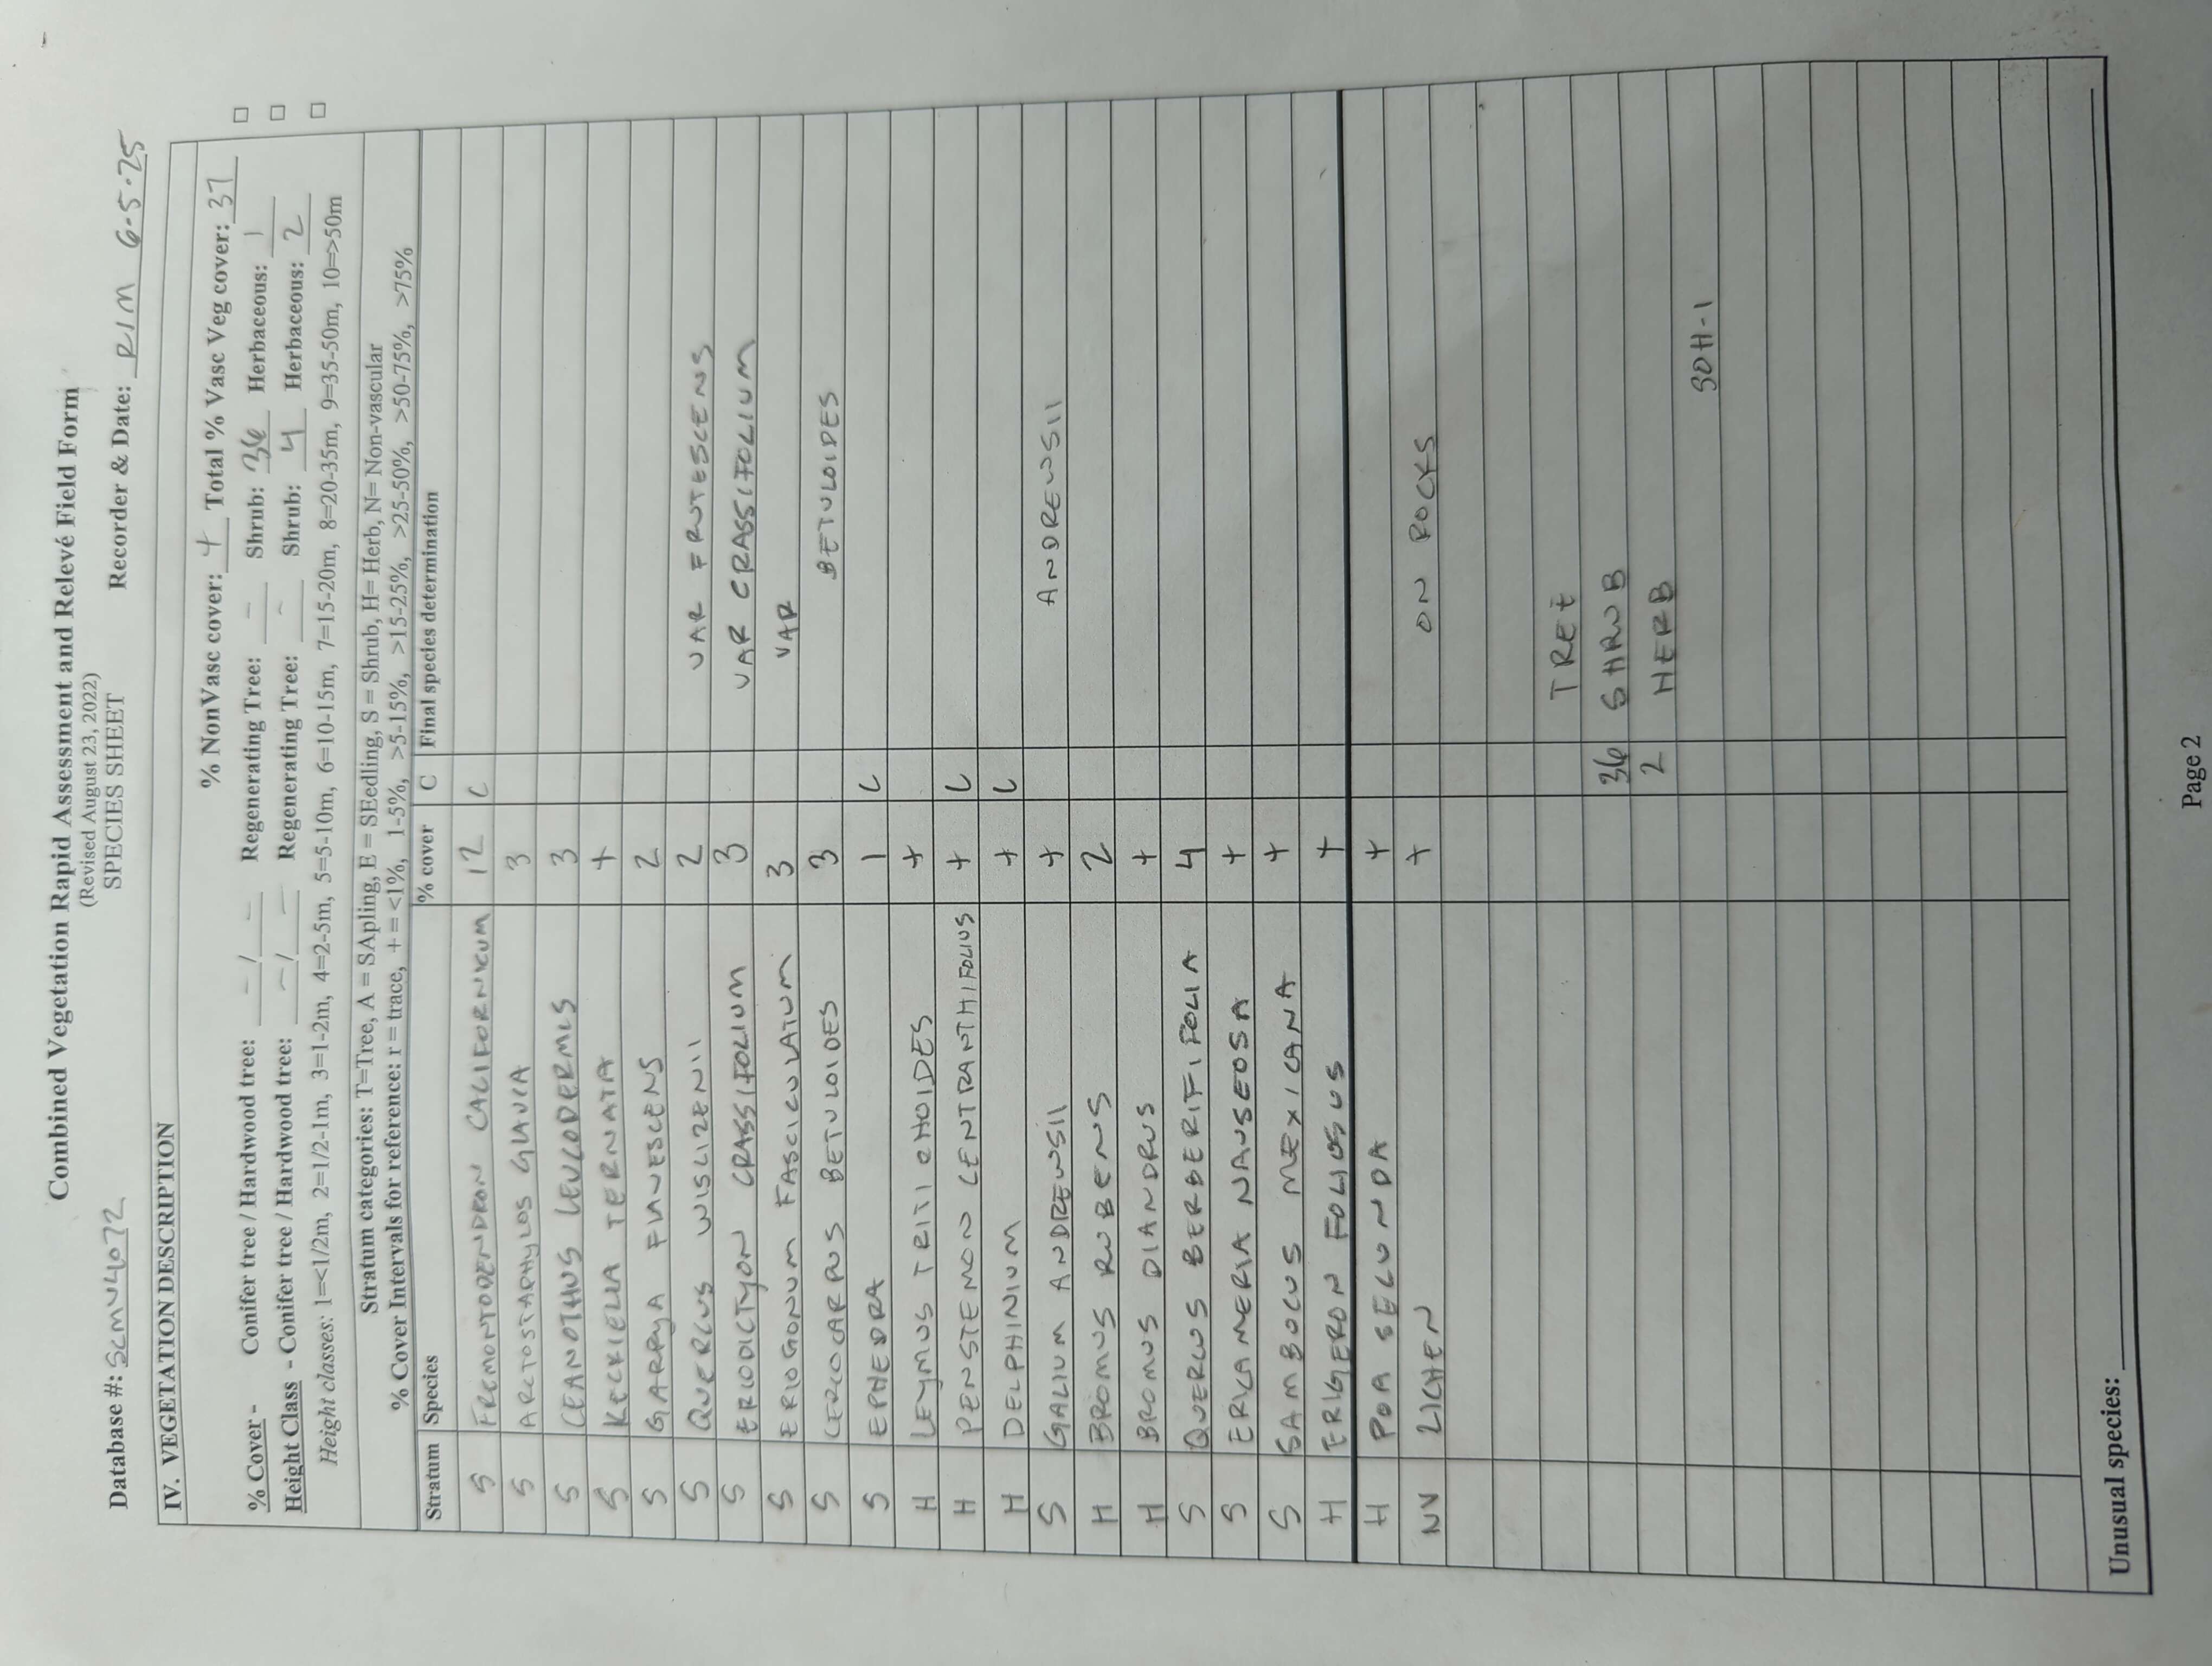 Combined Vegetation Rapid Assessment and Relevé Field Form
(Revised August 23, 2022)
SPECIES SHEET
Database #: SCMV4072 Recorder & Date: RIM 6-5-25
IV. VEGETATION DESCRIPTION
% NonVasc cover: + Total % Vasc Veg cover: 37
% Cover - Conifer tree / Hardwood tree: - / - Regenerating Tree: - Shrub: 36 Herbaceous: 1
Height Class - Conifer tree / Hardwood tree: - / - Regenerating Tree: - Shrub: 4 Herbaceous: 2
Height classes: 1=<1/2m, 2=1/2-1m, 3=1-2m, 4=2-5m, 5=5-10m, 6=10-15m, 7=15-20m, 8=20-35m, 9=35-50m, 10=>50m
Stratum categories: T=Tree, A = SApling, E = SEedling, S = Shrub, H= Herb, N= Non-vascular
% Cover Intervals for reference: r = trace, + = <1%, 1-5%, >5-15%, >15-25%, >25-50%, >50-75%, >75%
Stratum Species % cover C Final species determination
S FREMONTODENDRON CALIFORNICUM 12 C
S ARCTOSTAPHYLOS GLAUCA 3
S CEANOTHUS LEUCODERMIS 3
S KECKIELLA TERNATA +
S GARRYA FLAVESCENS 2
S QUERCUS WISLIZENII 2 VAR FRUTESCENS
S ERIODICTYON CRASSIFOLIUM 3 VAR CRASSIFOLIUM
S ERIOGONUM FASCICULATUM 3 VAR
S CERCOCARPUS BETULOIDES 3 BETULOIDES
S EPHEDRA 1 C
H LEYMUS TRITICHOIDES +
H PENSTEMON CENTRANTHIFOLIUS + C
H DELPHINIUM + C
S GALIUM ANDREWSII + ANDREWSII
H BROMUS RUBENS 2
H BROMUS DIANDRUS +
S QUERCUS BERBERIFIFOLIA 4
S ERICAMERIA NAUSEOSA +
S SAMBOCUS MEXICANA +
H ERIGERON FOLIOSUS +
H POA SECUNDA +
NV LICHEN + ON ROCKS
TREE
36 SHRUB
2 HERB
30H-1
Unusual species:
Page 2